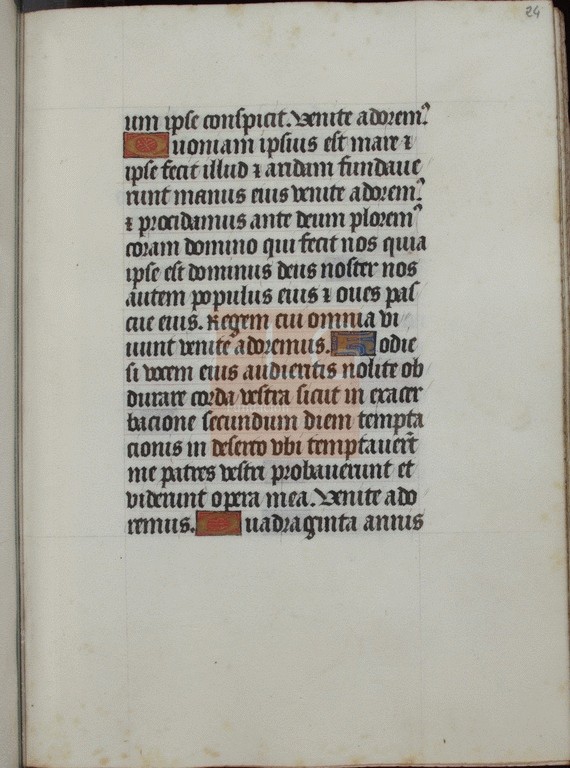 24
um ipse conspicit. Venite adorem⁹
Quoniam ipsius est mare ⁊
ipse fecit illud ⁊ aridam fundaue
runt manus eius venite adorem⁹
⁊ procidamus ante deum plorem⁹
coram domino qui fecit nos quia
ipse est dominus deus noster nos
autem populus eius ⁊ oues pas
cue eius. Regem cui omnia vi
uunt venite adoremus. Hodie
si vocem eius audieritis nolite ob
durare corda vestra sicut in exacer
bacione secundum diem tempta
cionis in deserto vbi temptauerūt
me patres vestri probauerunt et
viderunt opera mea. Venite ado
remus. Quadraginta annis